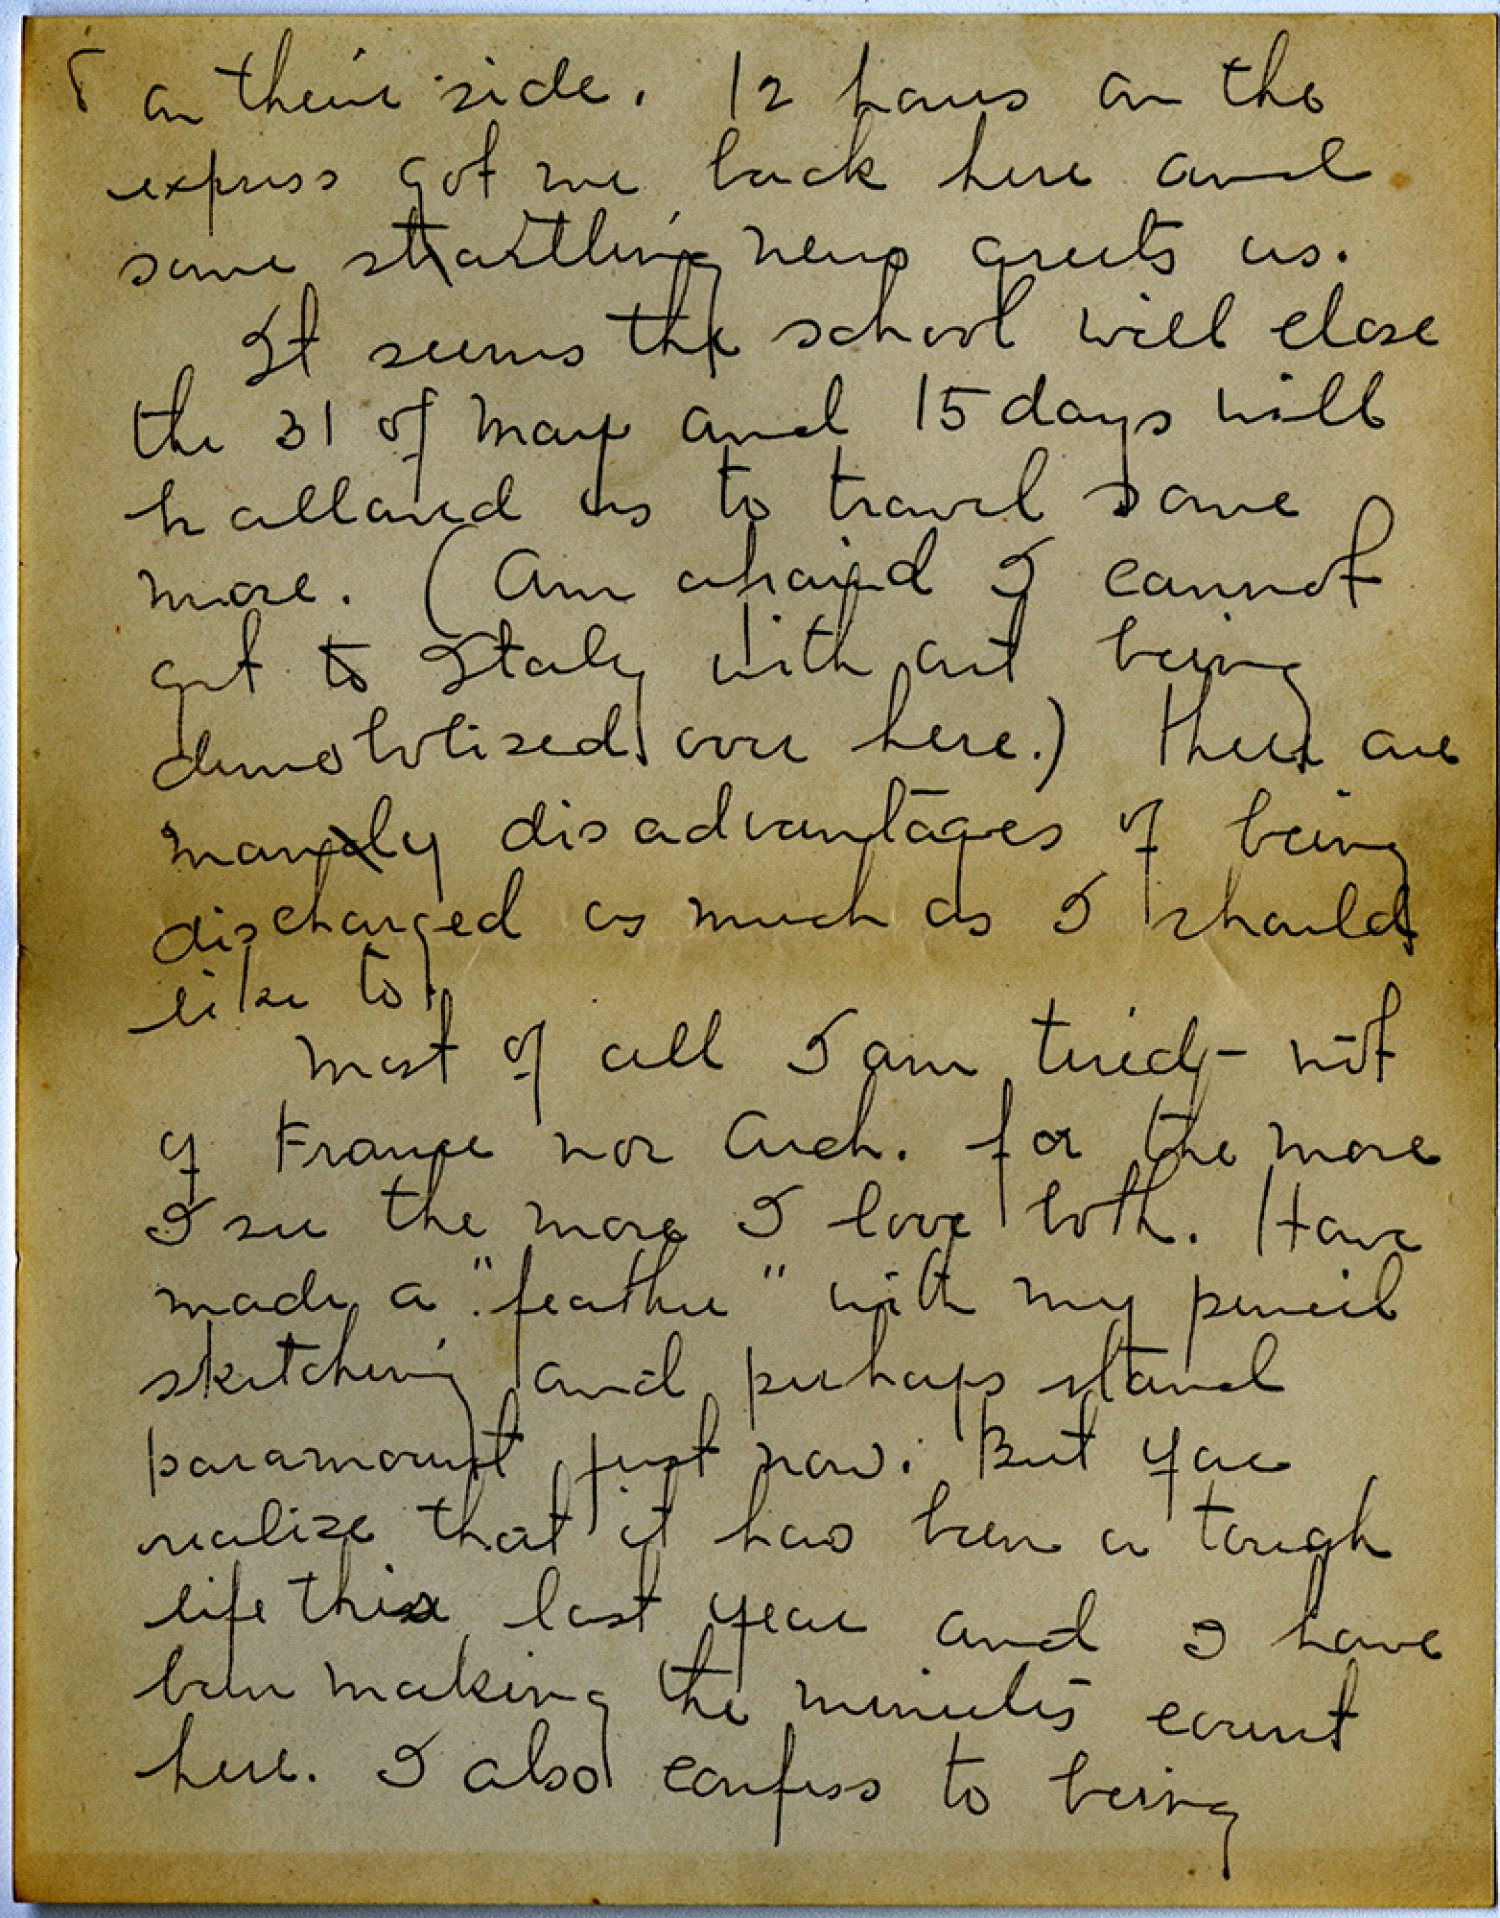 on their side. 12 hours on the
express got me back here and
some startling news greets us.
It seems the school will close
the 31 of May and 15 days will
be allowed us to travel some
more. (Am afraid I cannot
get to Italy with out being
demobilized over here.) There are
many disadvantages of being
discharged as much as I should
like to.
Most of all I am tired – not
of France nor Arch. for the more
I see the more I love both. Have
made a "feather" with my pencil
sketching and perhaps stand
paramount just now. But you
realize that it has been a tough
life this last year and I have
been making the minutes count
here. I also confess to being